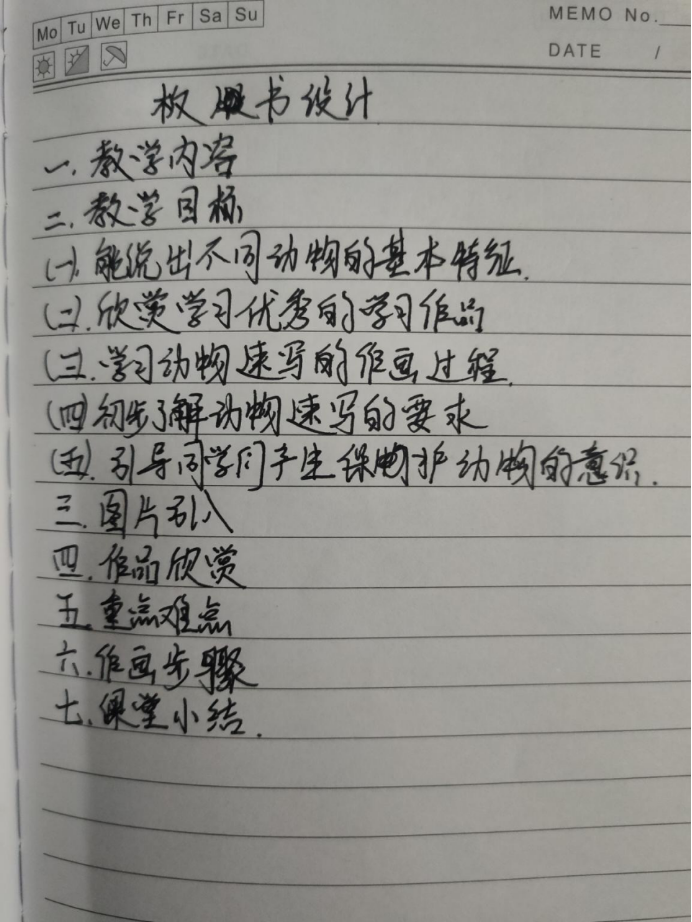 Mo Tu We Th Fr Sa Su
MEMO No.
DATE /
板书设计
一、教学内容
二、教学目标
(一).能说出不同动物的基本特征.
(二).欣赏学习优秀的学习作品
(三).学习动物速写的作画过程.
(四)初步了解动物速写的要求
(五).引导同学们产生保护动物的意识.
三.图片引入
四.作品欣赏
五.重点难点
六.作画步骤
七.课堂小结.